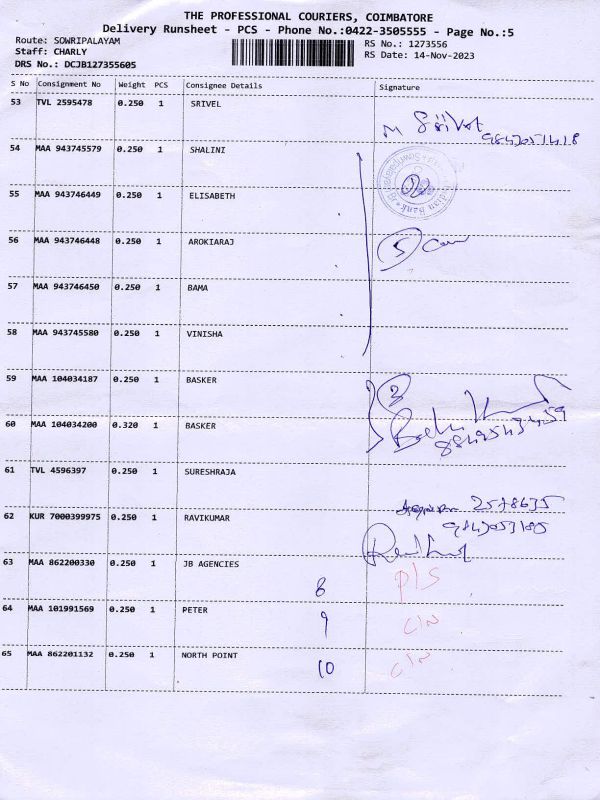 THE PROFESSIONAL COURIERS, COIMBATORE
Delivery Runsheet - PCS - Phone No.:0422-3505555 - Page No.:5
Route: SOWRIPALAYAM
RS No.: 1273556
Staff: CHARLY
RS Date: 14-Nov-2023
DRS No.: DCJB127355605
S No Consignment No Weight PCS Consignee Details Signature
53 TVL 2595478 0.250 1 SRIVEL
54 MAA 943745579 0.250 1 SHALINI
55 MAA 943746449 0.250 1 ELISABETH
56 MAA 943746448 0.250 1 AROKIARAJ
5
57 MAA 943746450 0.250 1 BAMA
58 MAA 943745580 0.250 1 VINISHA
59 MAA 104034187 0.250 1 BASKER
2
60 MAA 104034200 0.320 1 BASKER
61 TVL 4596397 0.250 1 SURESHRAJA
2578635
62 KUR 7000399975 0.250 1 RAVIKUMAR
63 MAA 862200330 0.250 1 JB AGENCIES
8 P/S
64 MAA 101991569 0.250 1 PETER
9 C/N
65 MAA 862201132 0.250 1 NORTH POINT
10 C/N